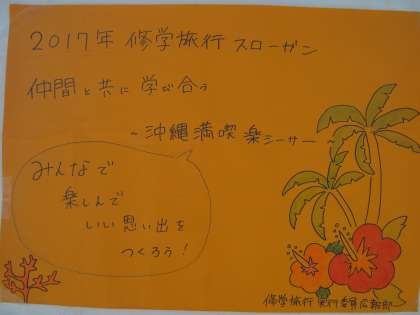 2017年 修学旅行 スローガン
仲間と共に学び合う
~沖縄満喫楽シーサー
みんなで
楽しんで
いい思い出を
つくろう!
修学旅行 実行委員広報部